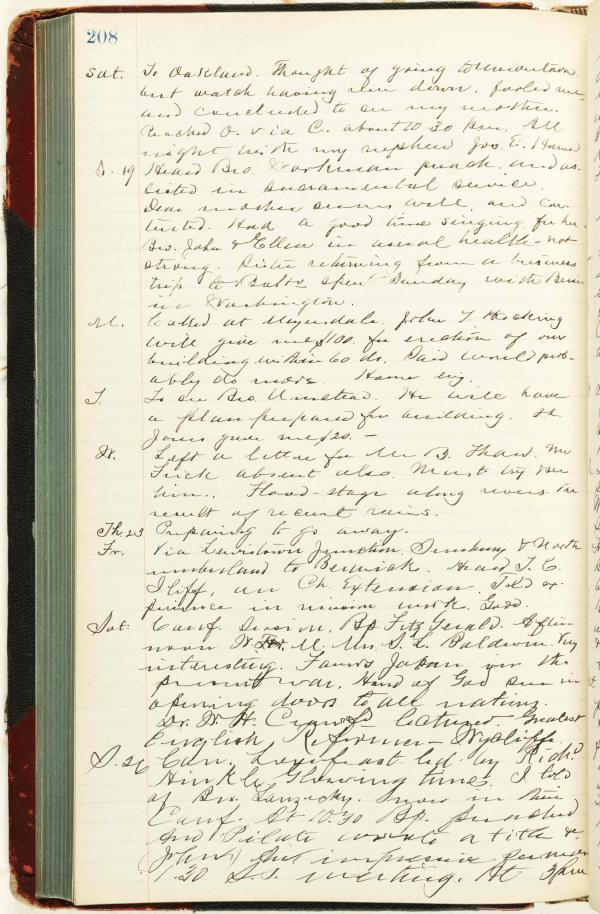 208
Sat. To Oakland. Thought of going to Uniontown
but watch having run down, fooled me,
and concluded to see my mother.
Reached O. via C. about 10 30 P.m. All
night with my nephew Jos. E. Harned
S. 19 Heard Bro. Workman preach, and as-
sisted in sacramental service.
Dear mother seems well, and con-
tented. Had a good time singing for her.
Bro. John & Ellen in usual health - not
strong. Sister returning from a business
trip to Balto. spent Sunday with
in Washington.
M. Called at Meyersdale, John T. Hocking
will give me $100. for erection of our
building within 60 ds. Said would prob-
ably do more. Home evg.
T. To see Bro. Umstead. He will have
a plan prepared for building. H.
Jones gave me $20. -
W. Left a letter for Mr. B. Thaw. Mr
Frick absent also. Must try & see
him. Flood-stage along rivers. The
result of recent rains.
Th. 23 Preparing to go away.
Fr. Via Lewistown Junction, Sunbury & North
umberland to Berwick. Heard T. C.
Iliff, on Ch. Extension. Told ex-
perience in mission work. Good.
Sat. Conf. Session, Bp. Fitz Gerald. After-
noon W. F. M. Mrs. S. L. Baldwin. Very
interesting. Favors Japan in the
present war. Hand of God seen in
opening doors to all nations.
Dr. W. H. Crawford lectured - Greatest
English Reformer - Wycliffe
S. 26 Con. Lovefeast led by Rich'd
Hinkle. Glowing times. I told
of Bro. Snow in this
Conf. At 10.30 Bp. preached
And Pilate wrote a title &c
(John) impressive sermon
1.30 S.S. meeting. At 3 P.m